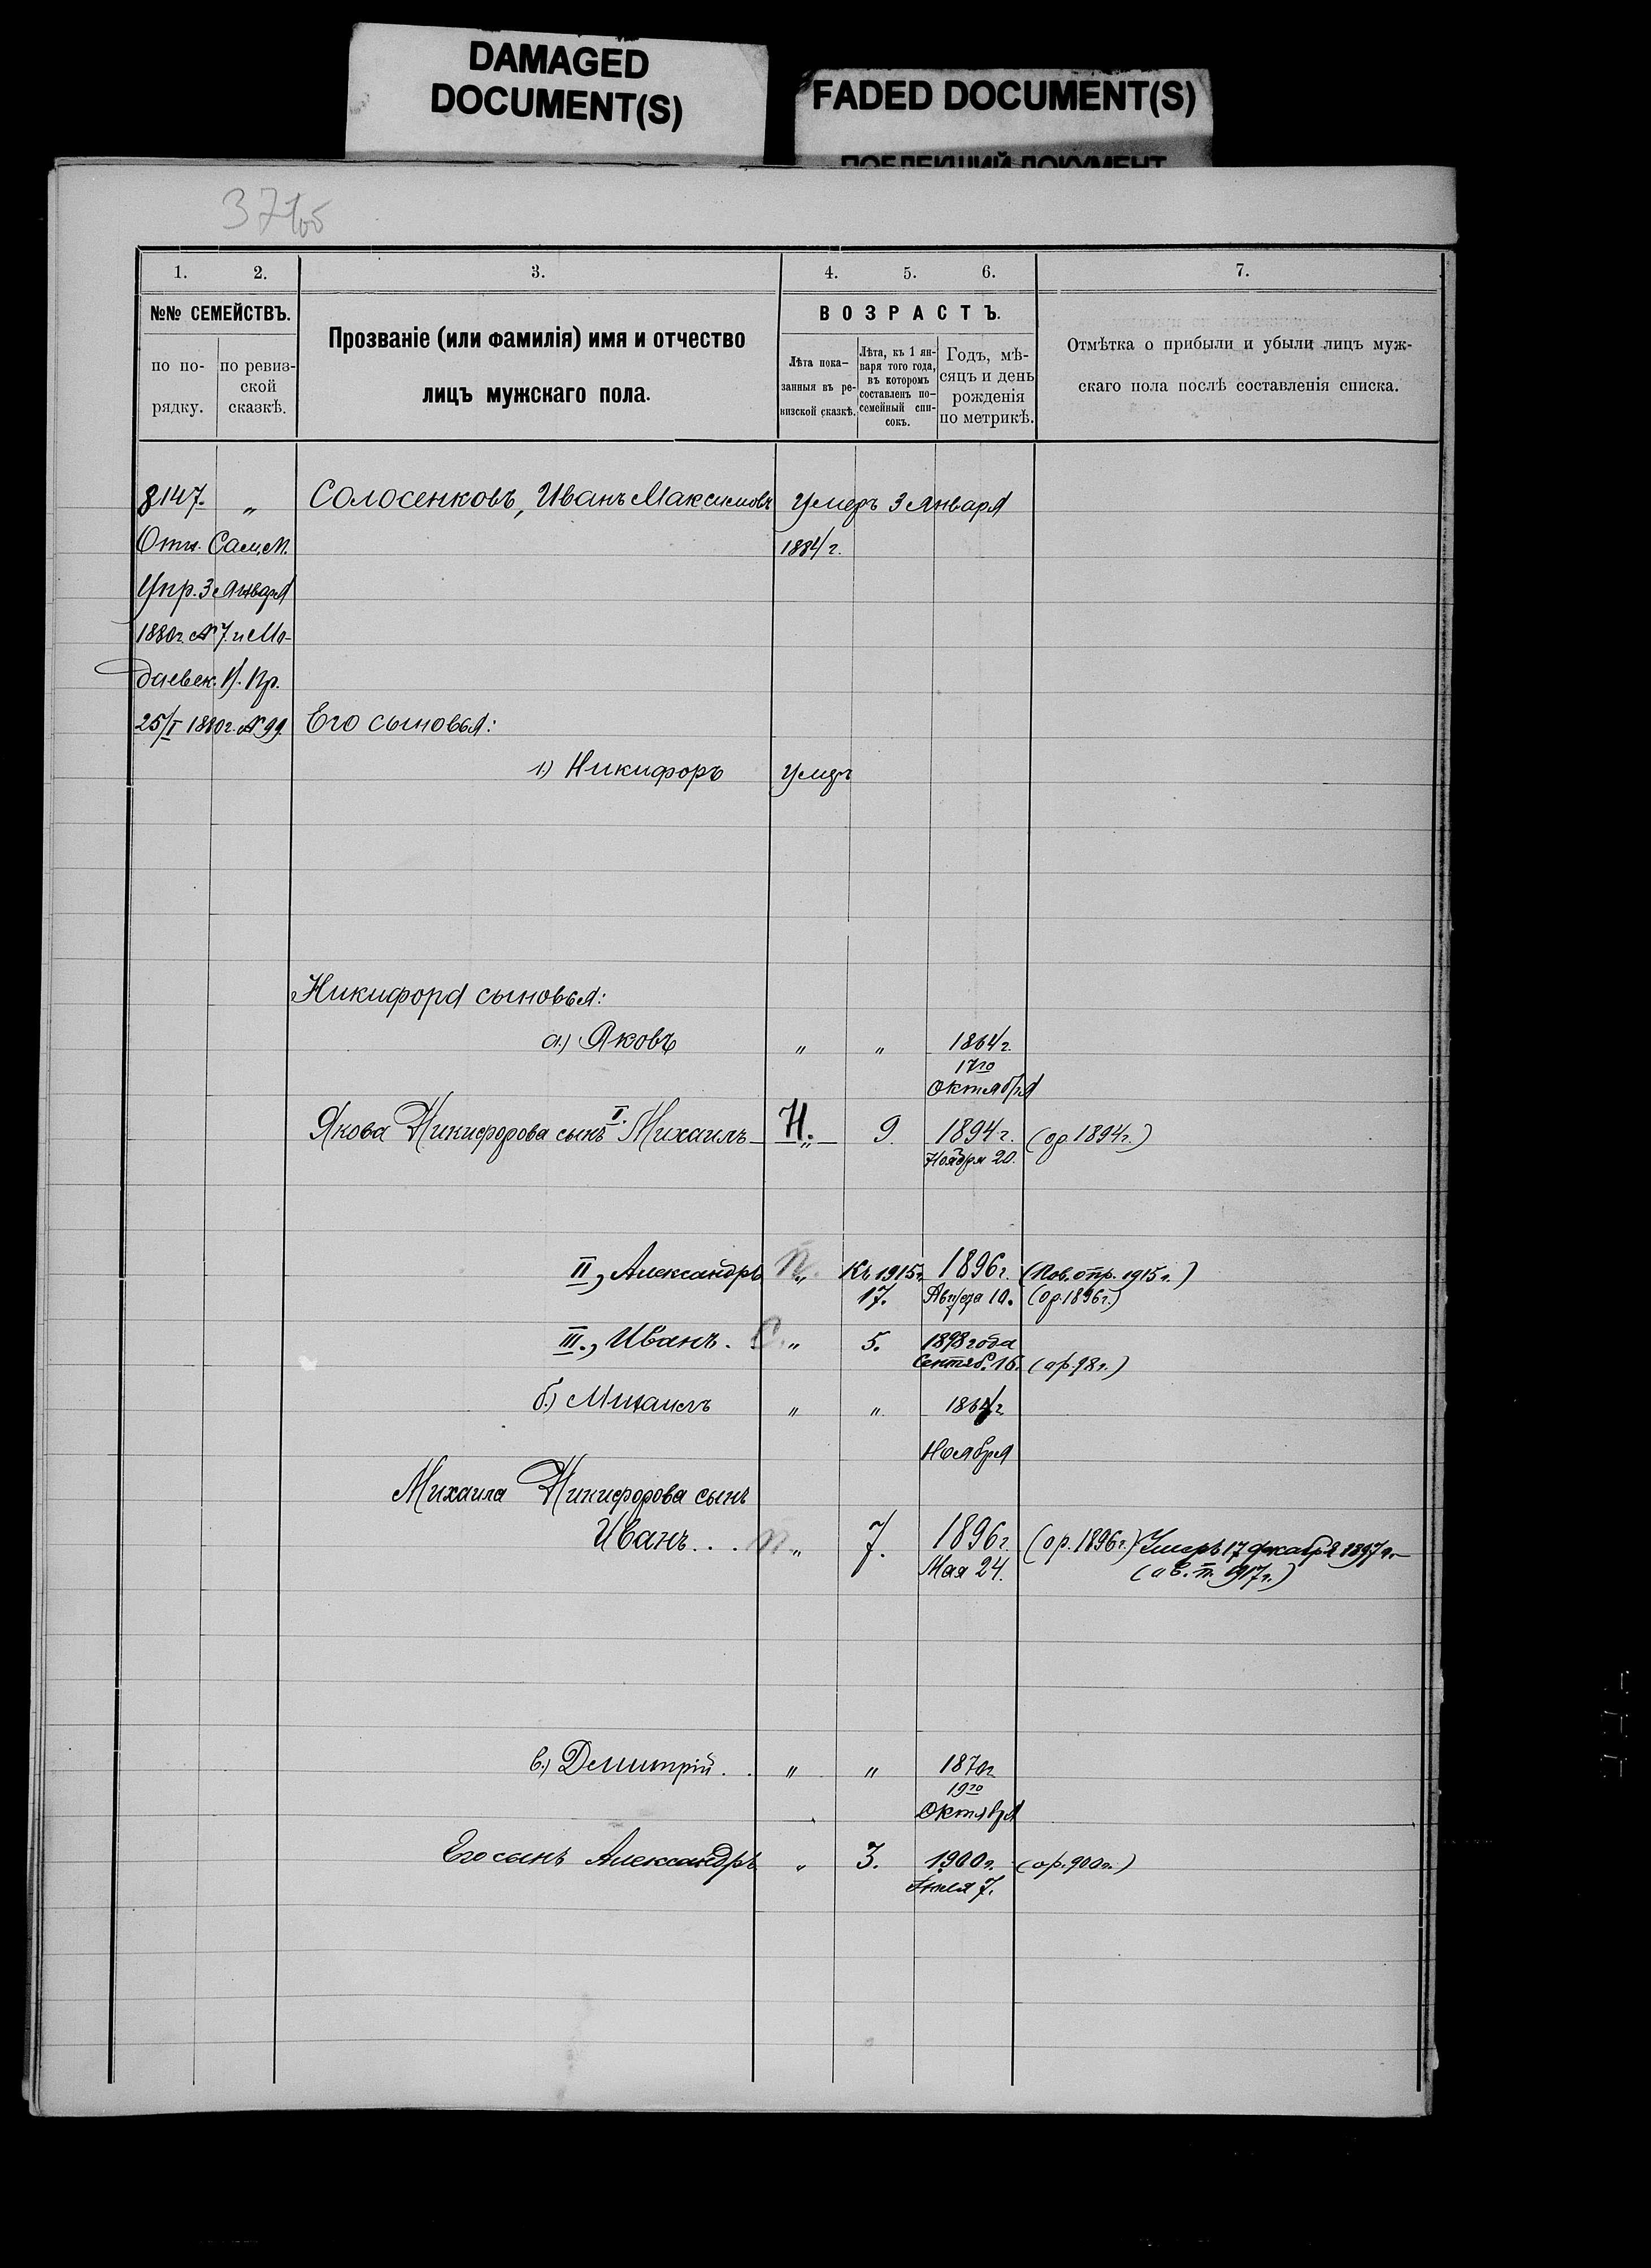 DAMAGED
DOCUMENT(S)
FADED DOCUMENT(S)
ПОБЛЕКШИЙ ДОКУМЕНТ
371об
1. 2. 3. 4. 5. 6. 7.
№№ СЕМЕЙСТВЪ.
по по-
рядку.
по ревиз-
ской
сказкѣ.
Прозваніе (или фамилія) имя и отчество
лицъ мужскаго пола.
ВОЗРАСТЪ.
Лѣта пока-
занныя въ ре-
визской сказкѣ.
Лѣта, къ 1 ян-
варя того года,
въ которомъ
составленъ по-
семейный спи-
сокъ.
Годъ, мѣ-
сяцъ и день
рожденія
по метрикѣ.
Отмѣтка о прибыли и убыли лицъ муж-
скаго пола послѣ составленія списка.
8147. " Солосенковъ, Иванъ Максимовъ Умеръ 3 Января
Отн. Сам. М. 1884 г.
Упр. 3 Января
1880 г. № 7. и Мо-
25/I 1880 г. № 99. Его сыновья:
1.) Никифоръ Умеръ
Никифора сыновья:
а.) Яковъ " " 1864 г.
17го
Октября
Якова Никифорова сынъ I. Михаилъ Н. " 9. 1894 г. (ор. 1894 г.)
Ноября 20.
II, Александръ П. " Къ 1915 г. 1896 г. (Пов. отр. 1915 г.)
17. Августа 10. (ор. 1896 г.)
III., Иванъ. С. " 5. 1898 года
Сентяб. 16. (ор. 98 г.)
б.) Михаилъ " " 1864 г.
Ноября
Михаила Никифорова сынъ
Иванъ... П. " 7. 1896 г. (ор. 1896 г.) Умеръ 17 декабря 1897 г.
Мая 24. 1917 г.)
в.) Демитрій.. " " 1870 г.
19го
Октября
Его сынъ Александръ " 3. 1900 г. (ор. 900 г.)
7.